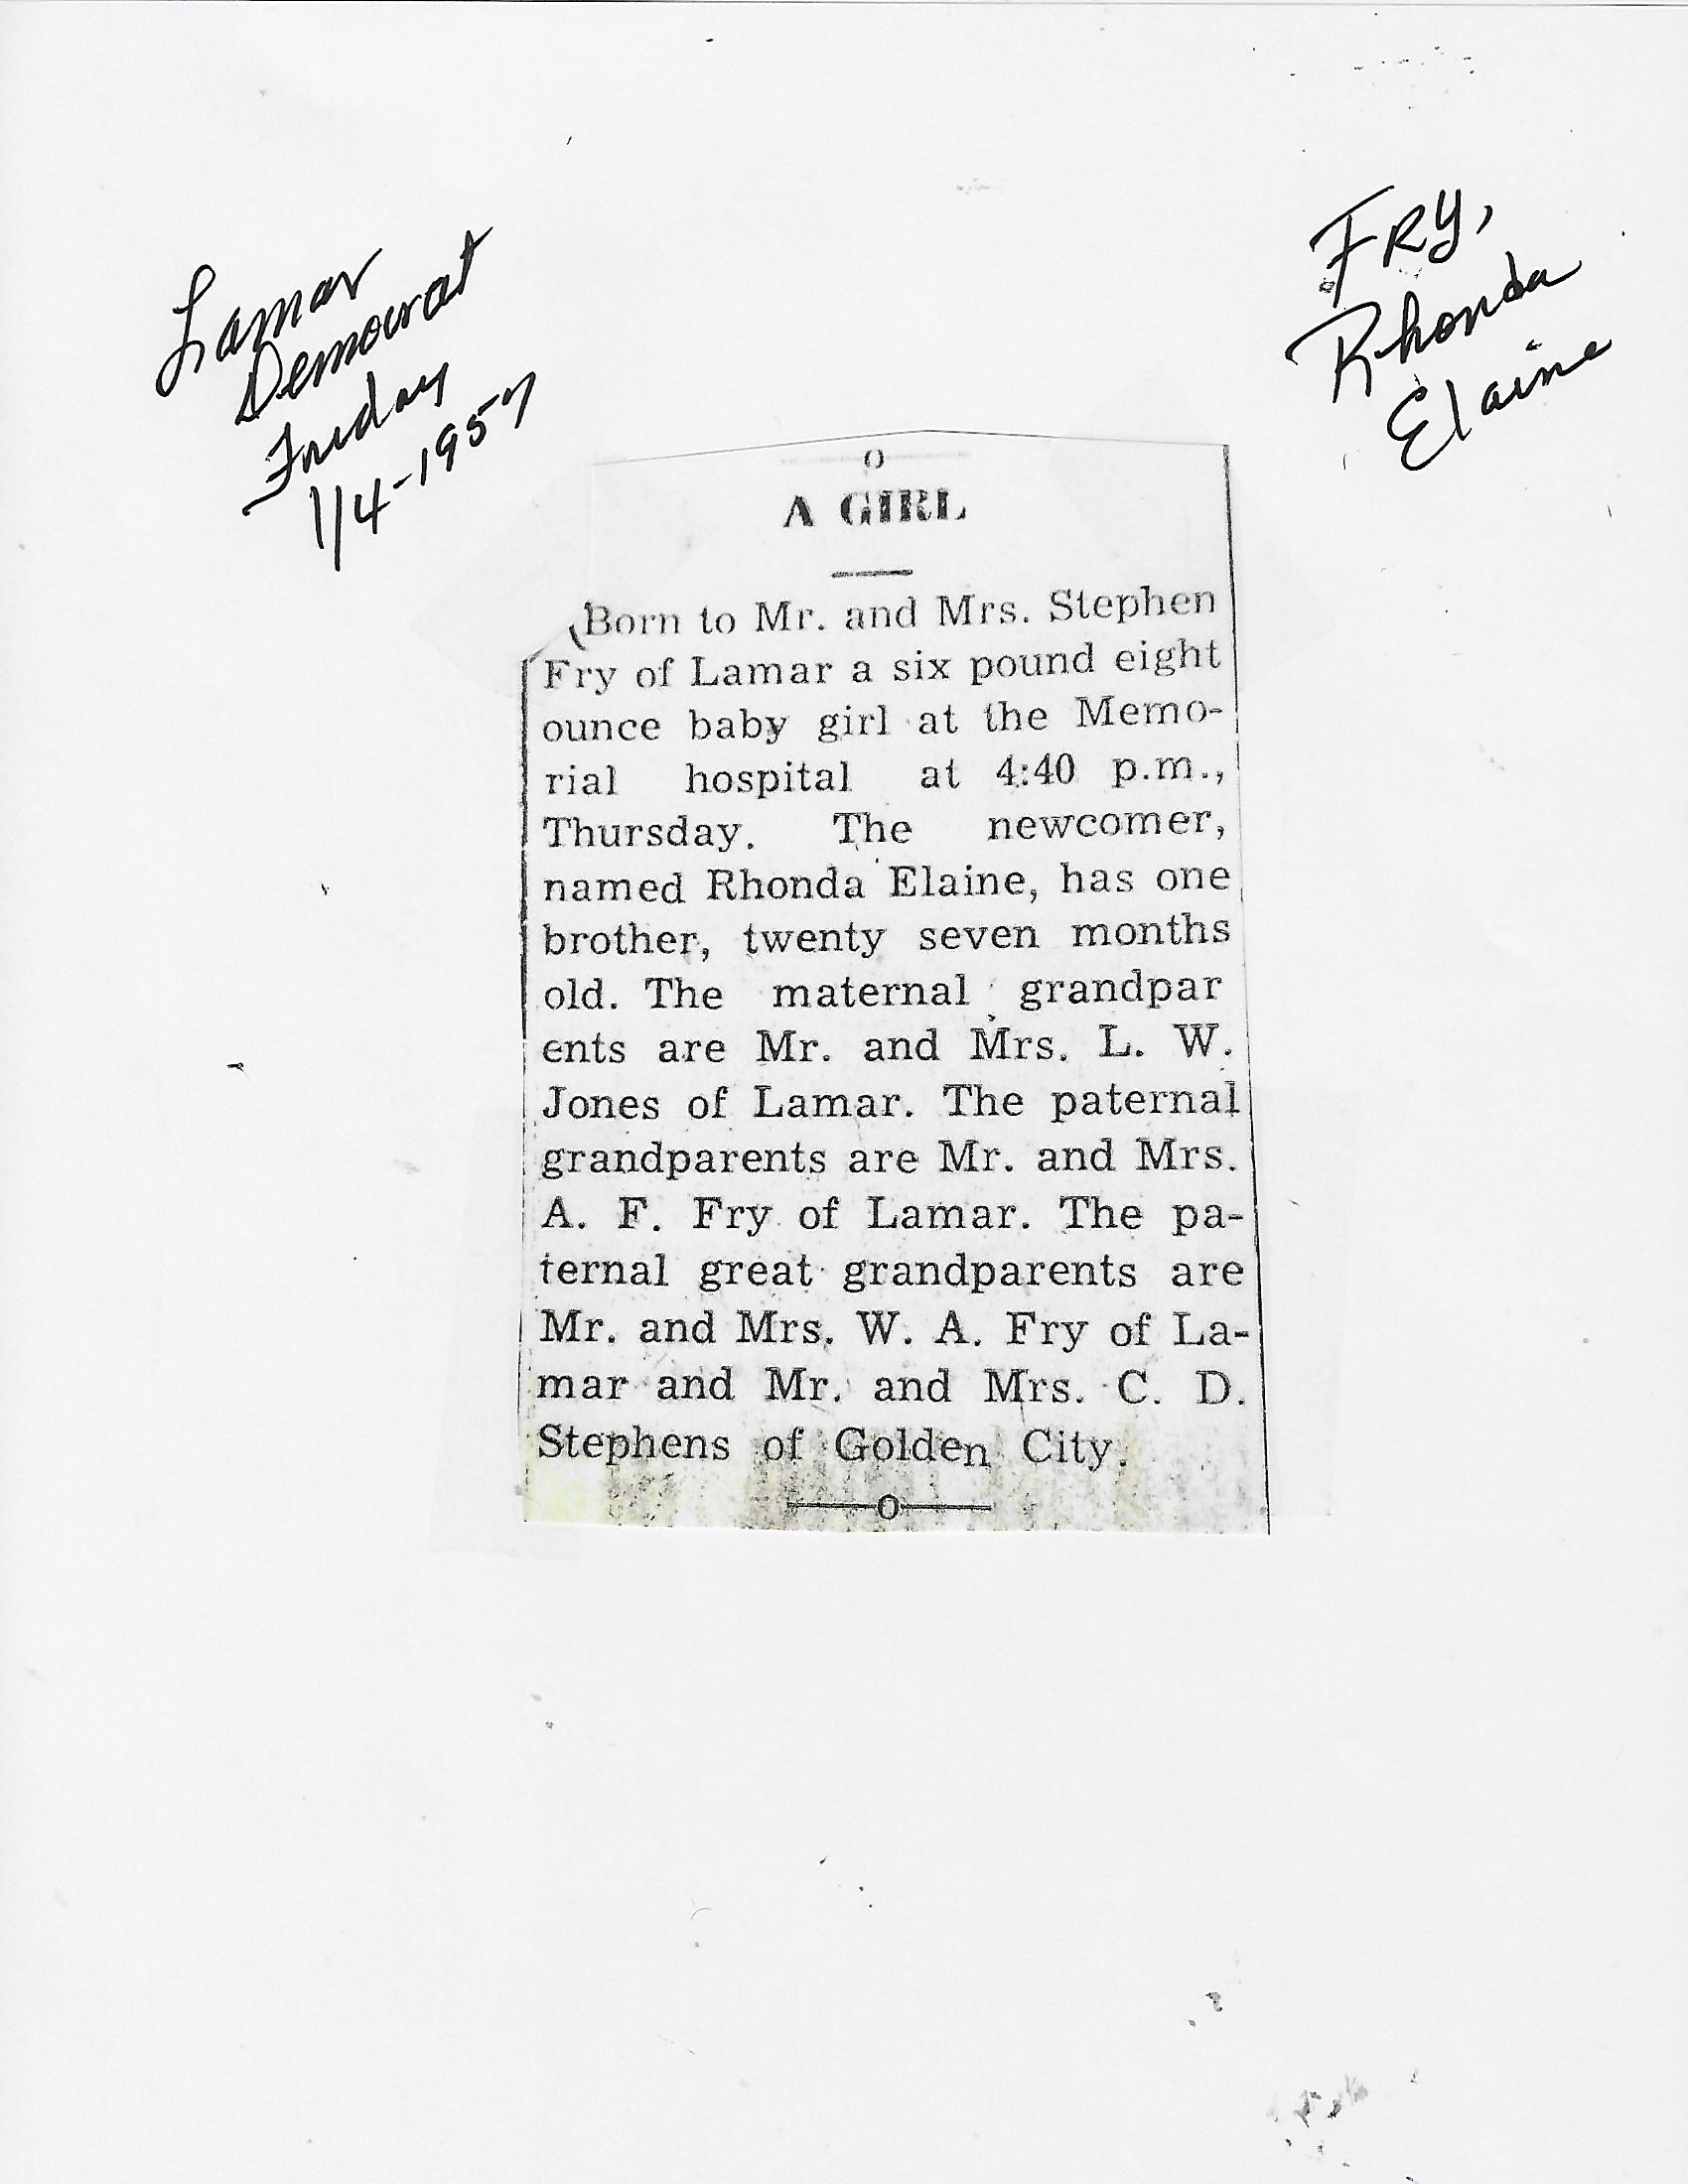 Lamar
Democrat
Friday
1/4-1957
FRY,
Rhonda
Elaine
A GIRL
Born to Mr. and Mrs. Stephen
Fry of Lamar a six pound eight
ounce baby girl at the Memo-
rial hospital at 4:40 p.m.,
Thursday. The newcomer,
named Rhonda Elaine, has one
brother, twenty seven months
old. The maternal grandpar
ents are Mr. and Mrs. L. W.
Jones of Lamar. The paternal
grandparents are Mr. and Mrs.
A. F. Fry of Lamar. The pa-
ternal great grandparents are
Mr. and Mrs. W. A. Fry of La-
mar and Mr. and Mrs. C. D.
Stephens of Golden City.